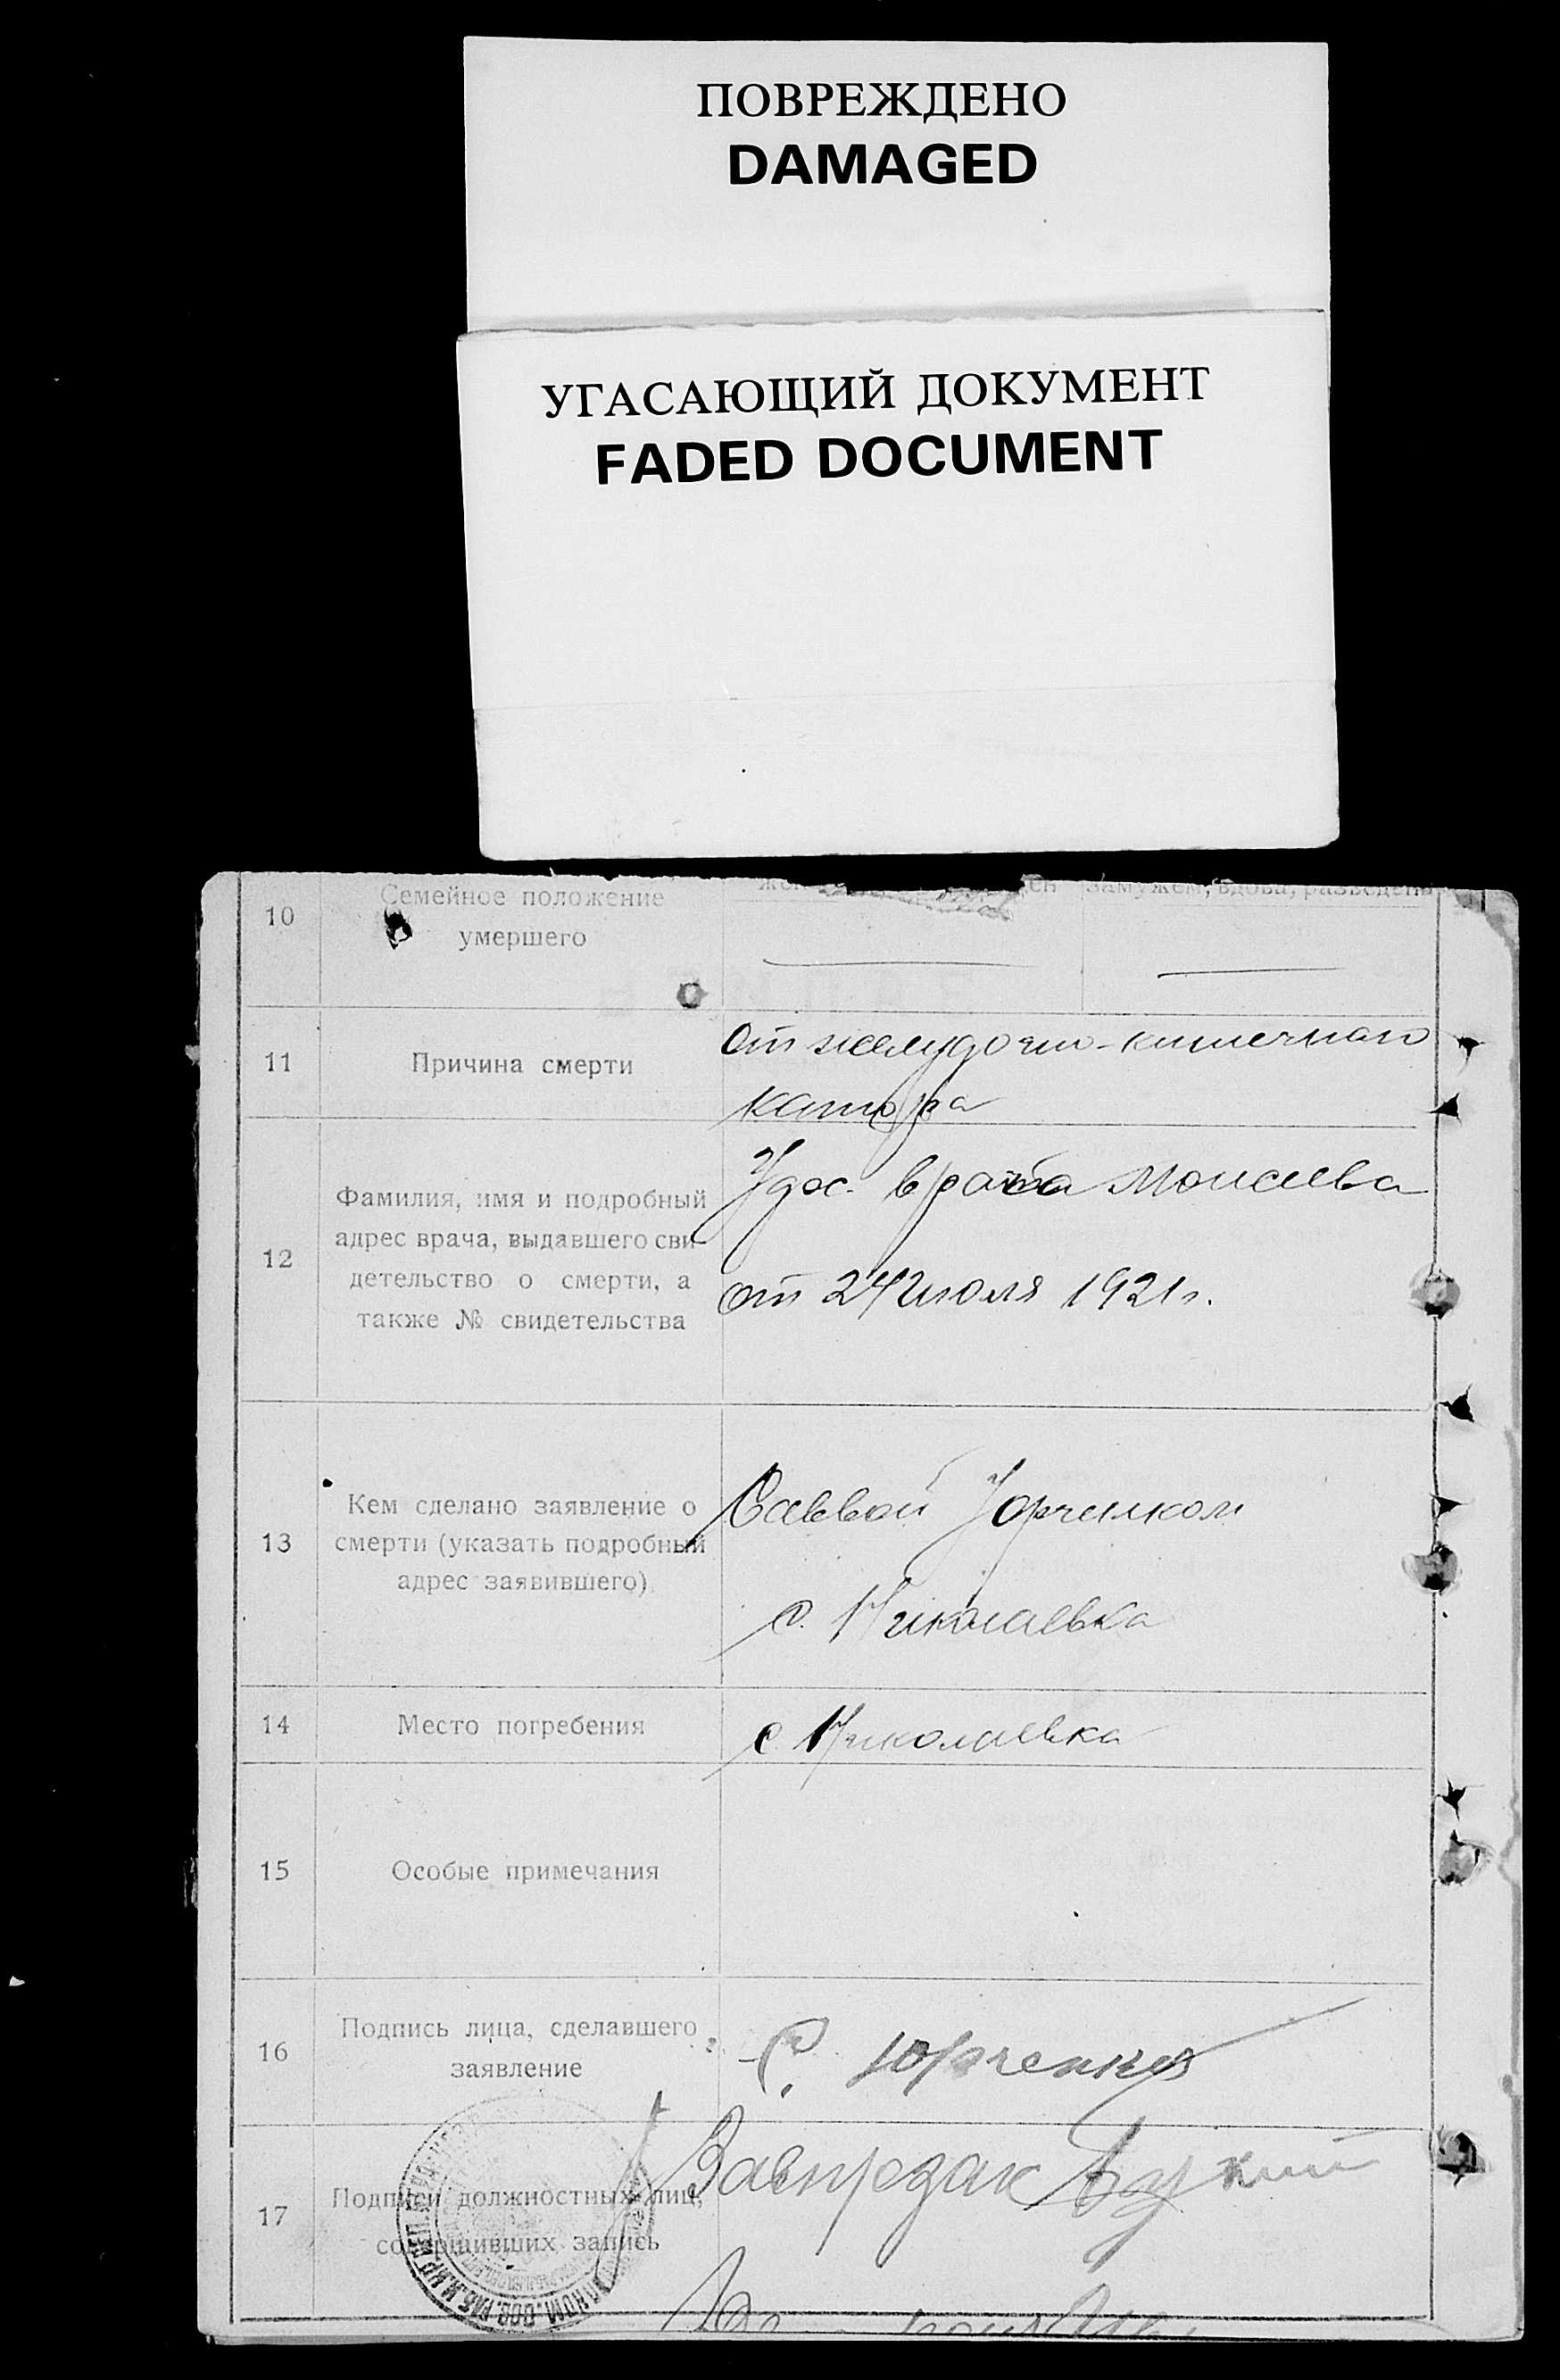 ПОВРЕЖДЕНО
DAMAGED
УГАСАЮЩИЙ ДОКУМЕНТ
FADED DOCUMENT
10
Семейное положение
умершего
замужем, вдова, разведена
11
Причина смерти
От желудочно-кишечнаго
катара
12
Фамилия, имя и подробный
адрес врача, выдавшего сви-
детельство о смерти, а
также № свидетельства
Удос. врача Моисеева
от 24 июля 1921 г.
13
Кем сделано заявление о
смерти (указать подробный
адрес заявившего)
Саввой Юрченком
с. Николаевка
14
Место погребения
с Николаевка
15
Особые примечания
16
Подпись лица, сделавшего
заявление
С. Юрченко
17
Подписи должностных лиц,
совершивших запись
Завпрезак